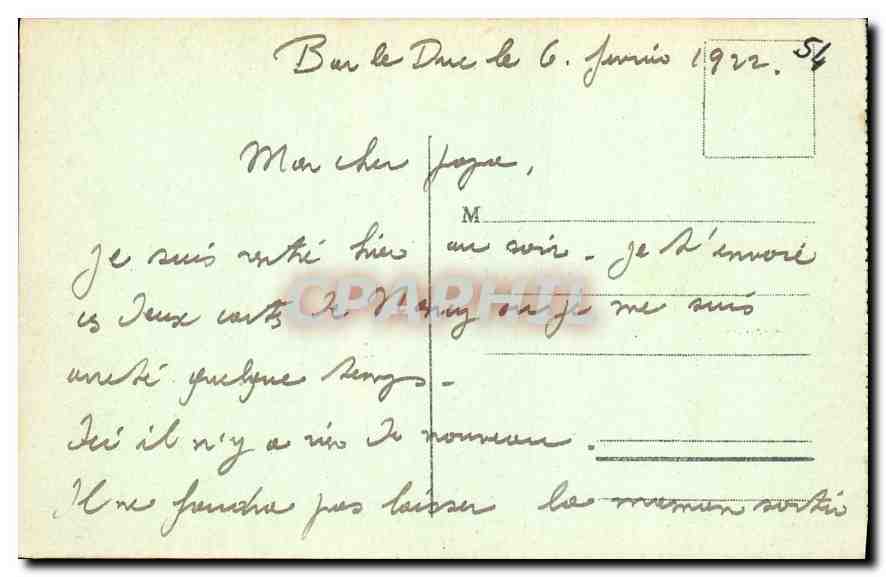 54
Bar le Duc le 6. fevrier 1922.
Mon cher papa,
M
Je suis rentré hier au soir. Je t'envoie
ces deux cartes de Nancy ou je me suis
arreté quelque temps.
Ici il n'y a rien de nouveau.
Il ne faudra pas laisser la maman sortir
CPAPHIL